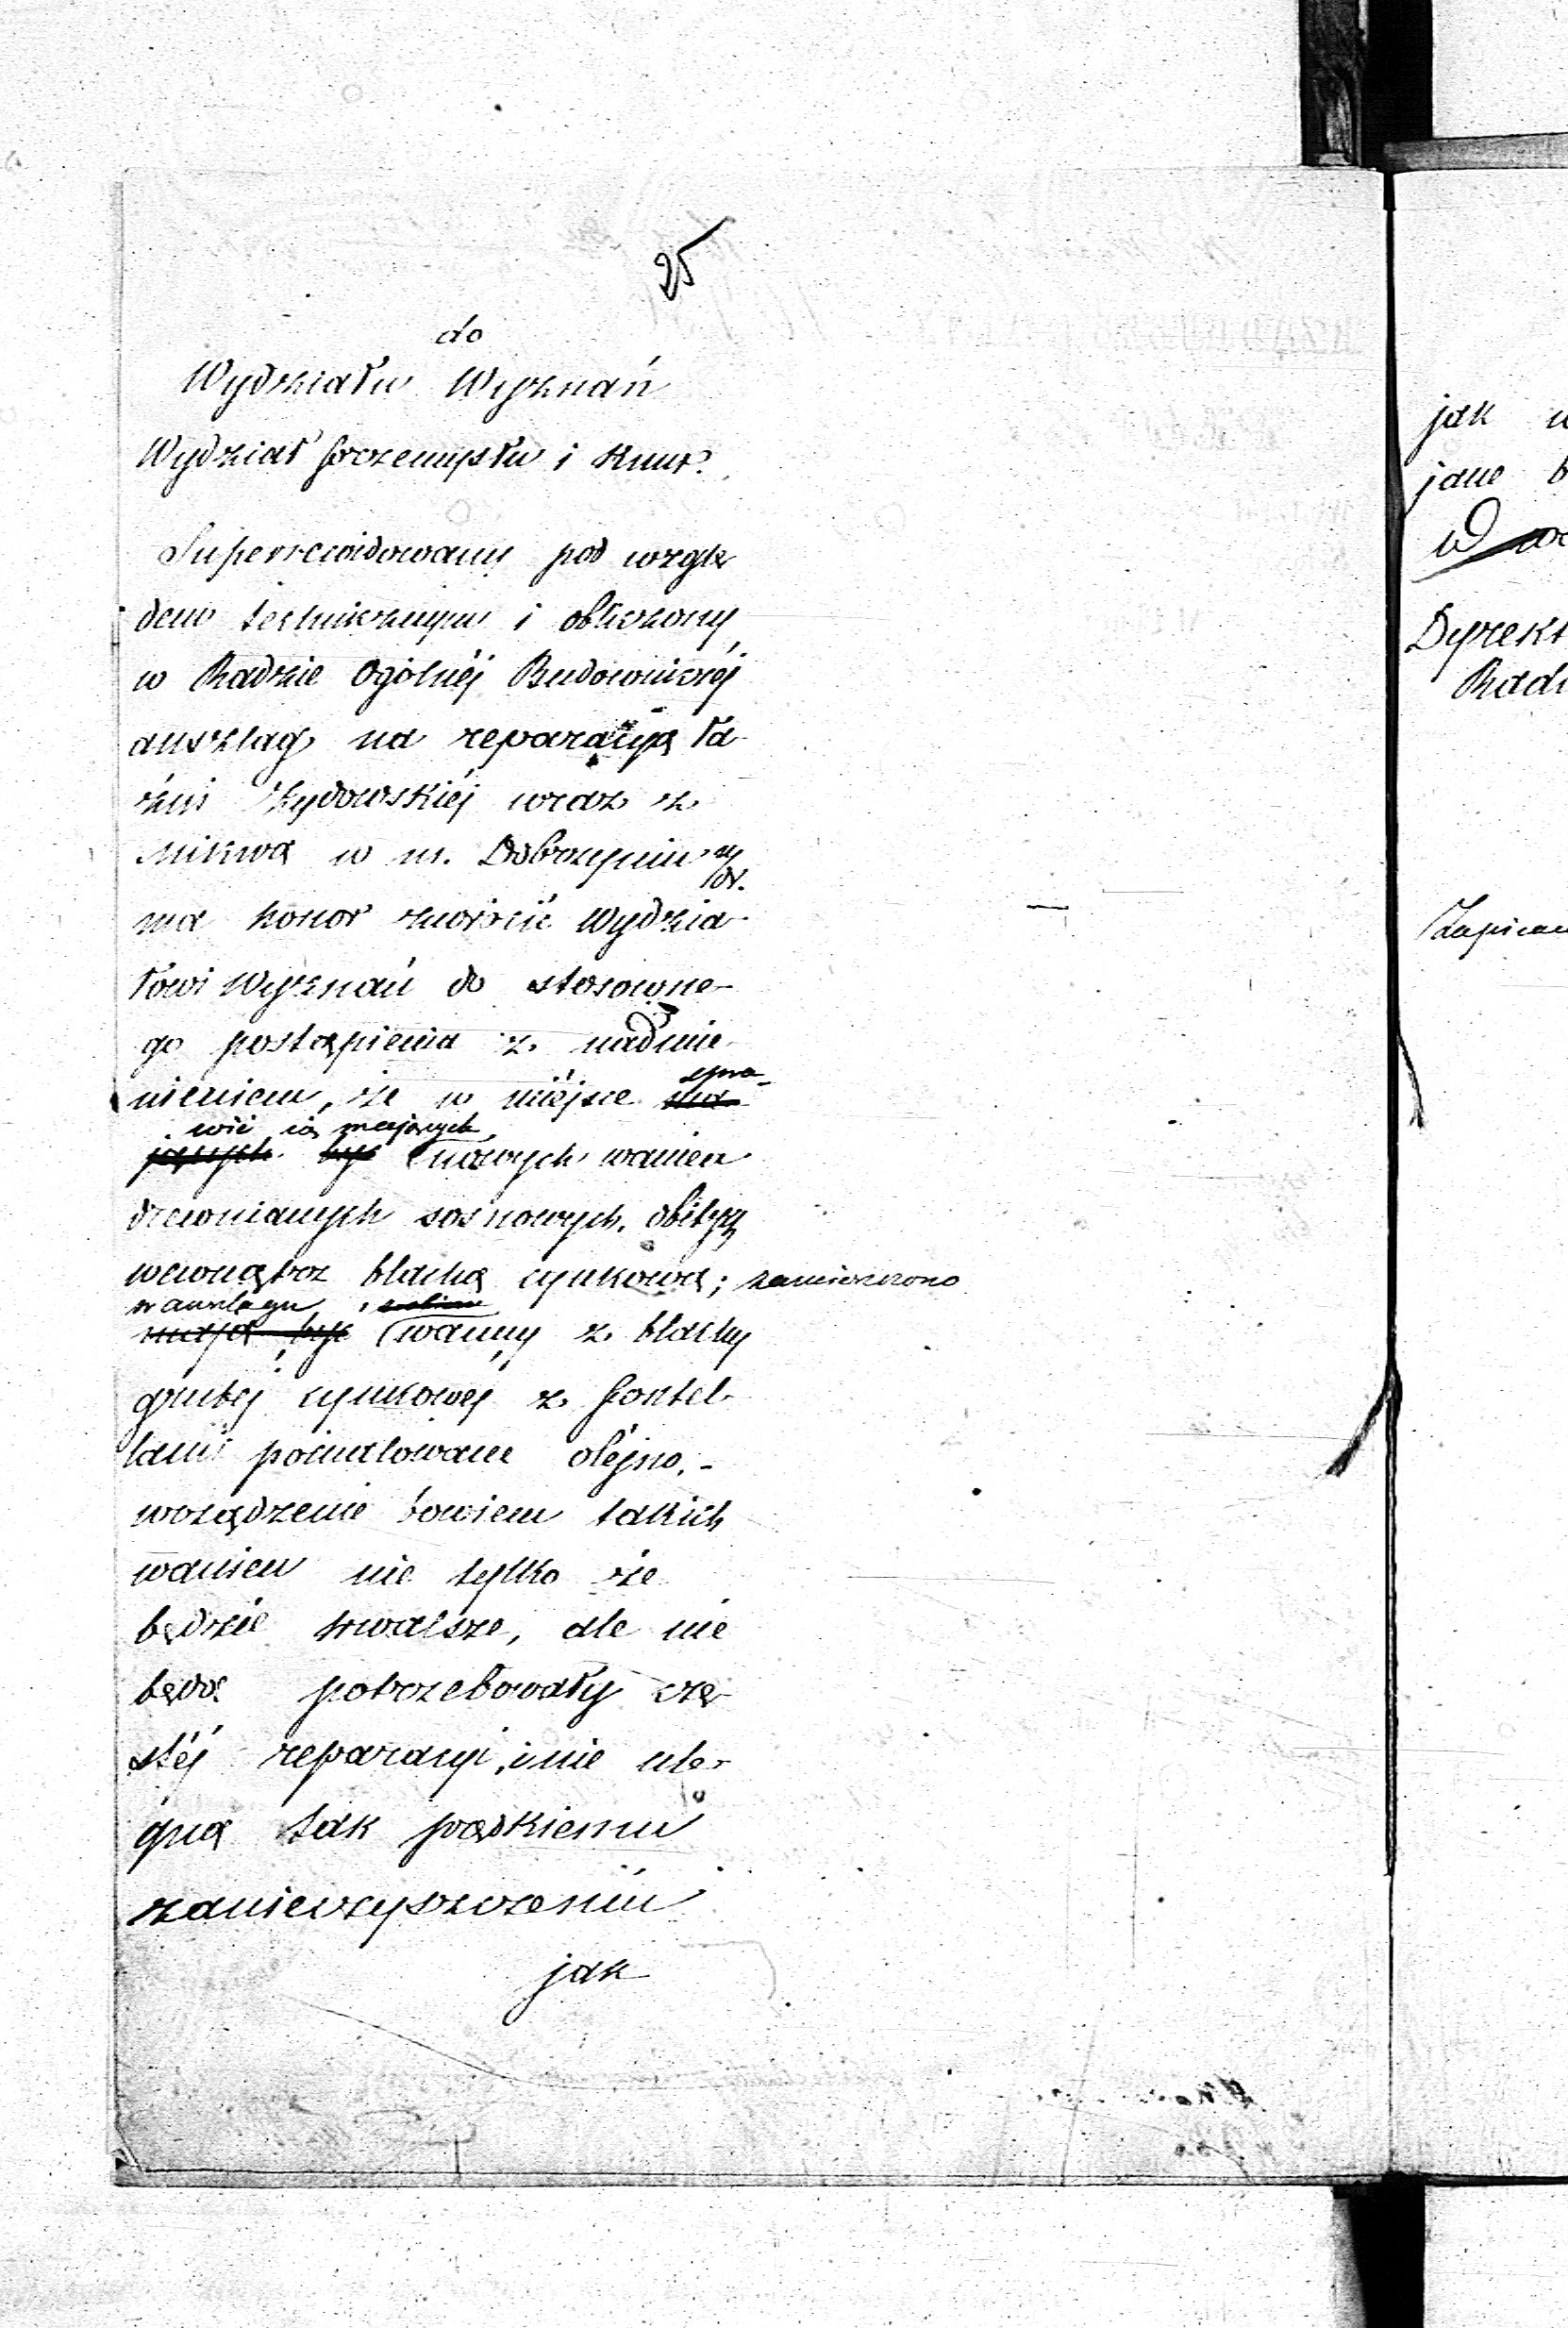 25
do
Wydziału Wyznań
Wydział Przemysłu i Kunr.
Superrewidowany pod wzglę
dem technicznym i obliczony
w Radzie Ogólnéj Budowniczéj
anszlag na reparacyą ła
źni Żydowskiéj wraz z
Mikwą w m. Dobrzyniu n/Dr.
ma honor zwrócić Wydzia
łowi Wyznań do stosowne-
go postąpienia z nadmie
nieniem, że w miejsce spra-
wić się mających
jących być nowych wanien
drewnianych sosnowych, obitych
wewnątrz blachą cynkową; zamieszczono
w anszlagu
mają być wanny z blachy
grubéj cynkowéj z fontel
lami pomalowane olejno, -
urządzenie bowiem takich
wanien nie tylko że
będzie trwalsze, ale nie
będą potrzebowały czę-
stéj reparacyi, i nie ule-
gną tak prędkiemu
zanieczyszczeniu
jak
jak
jane
Dyrekt
Radc